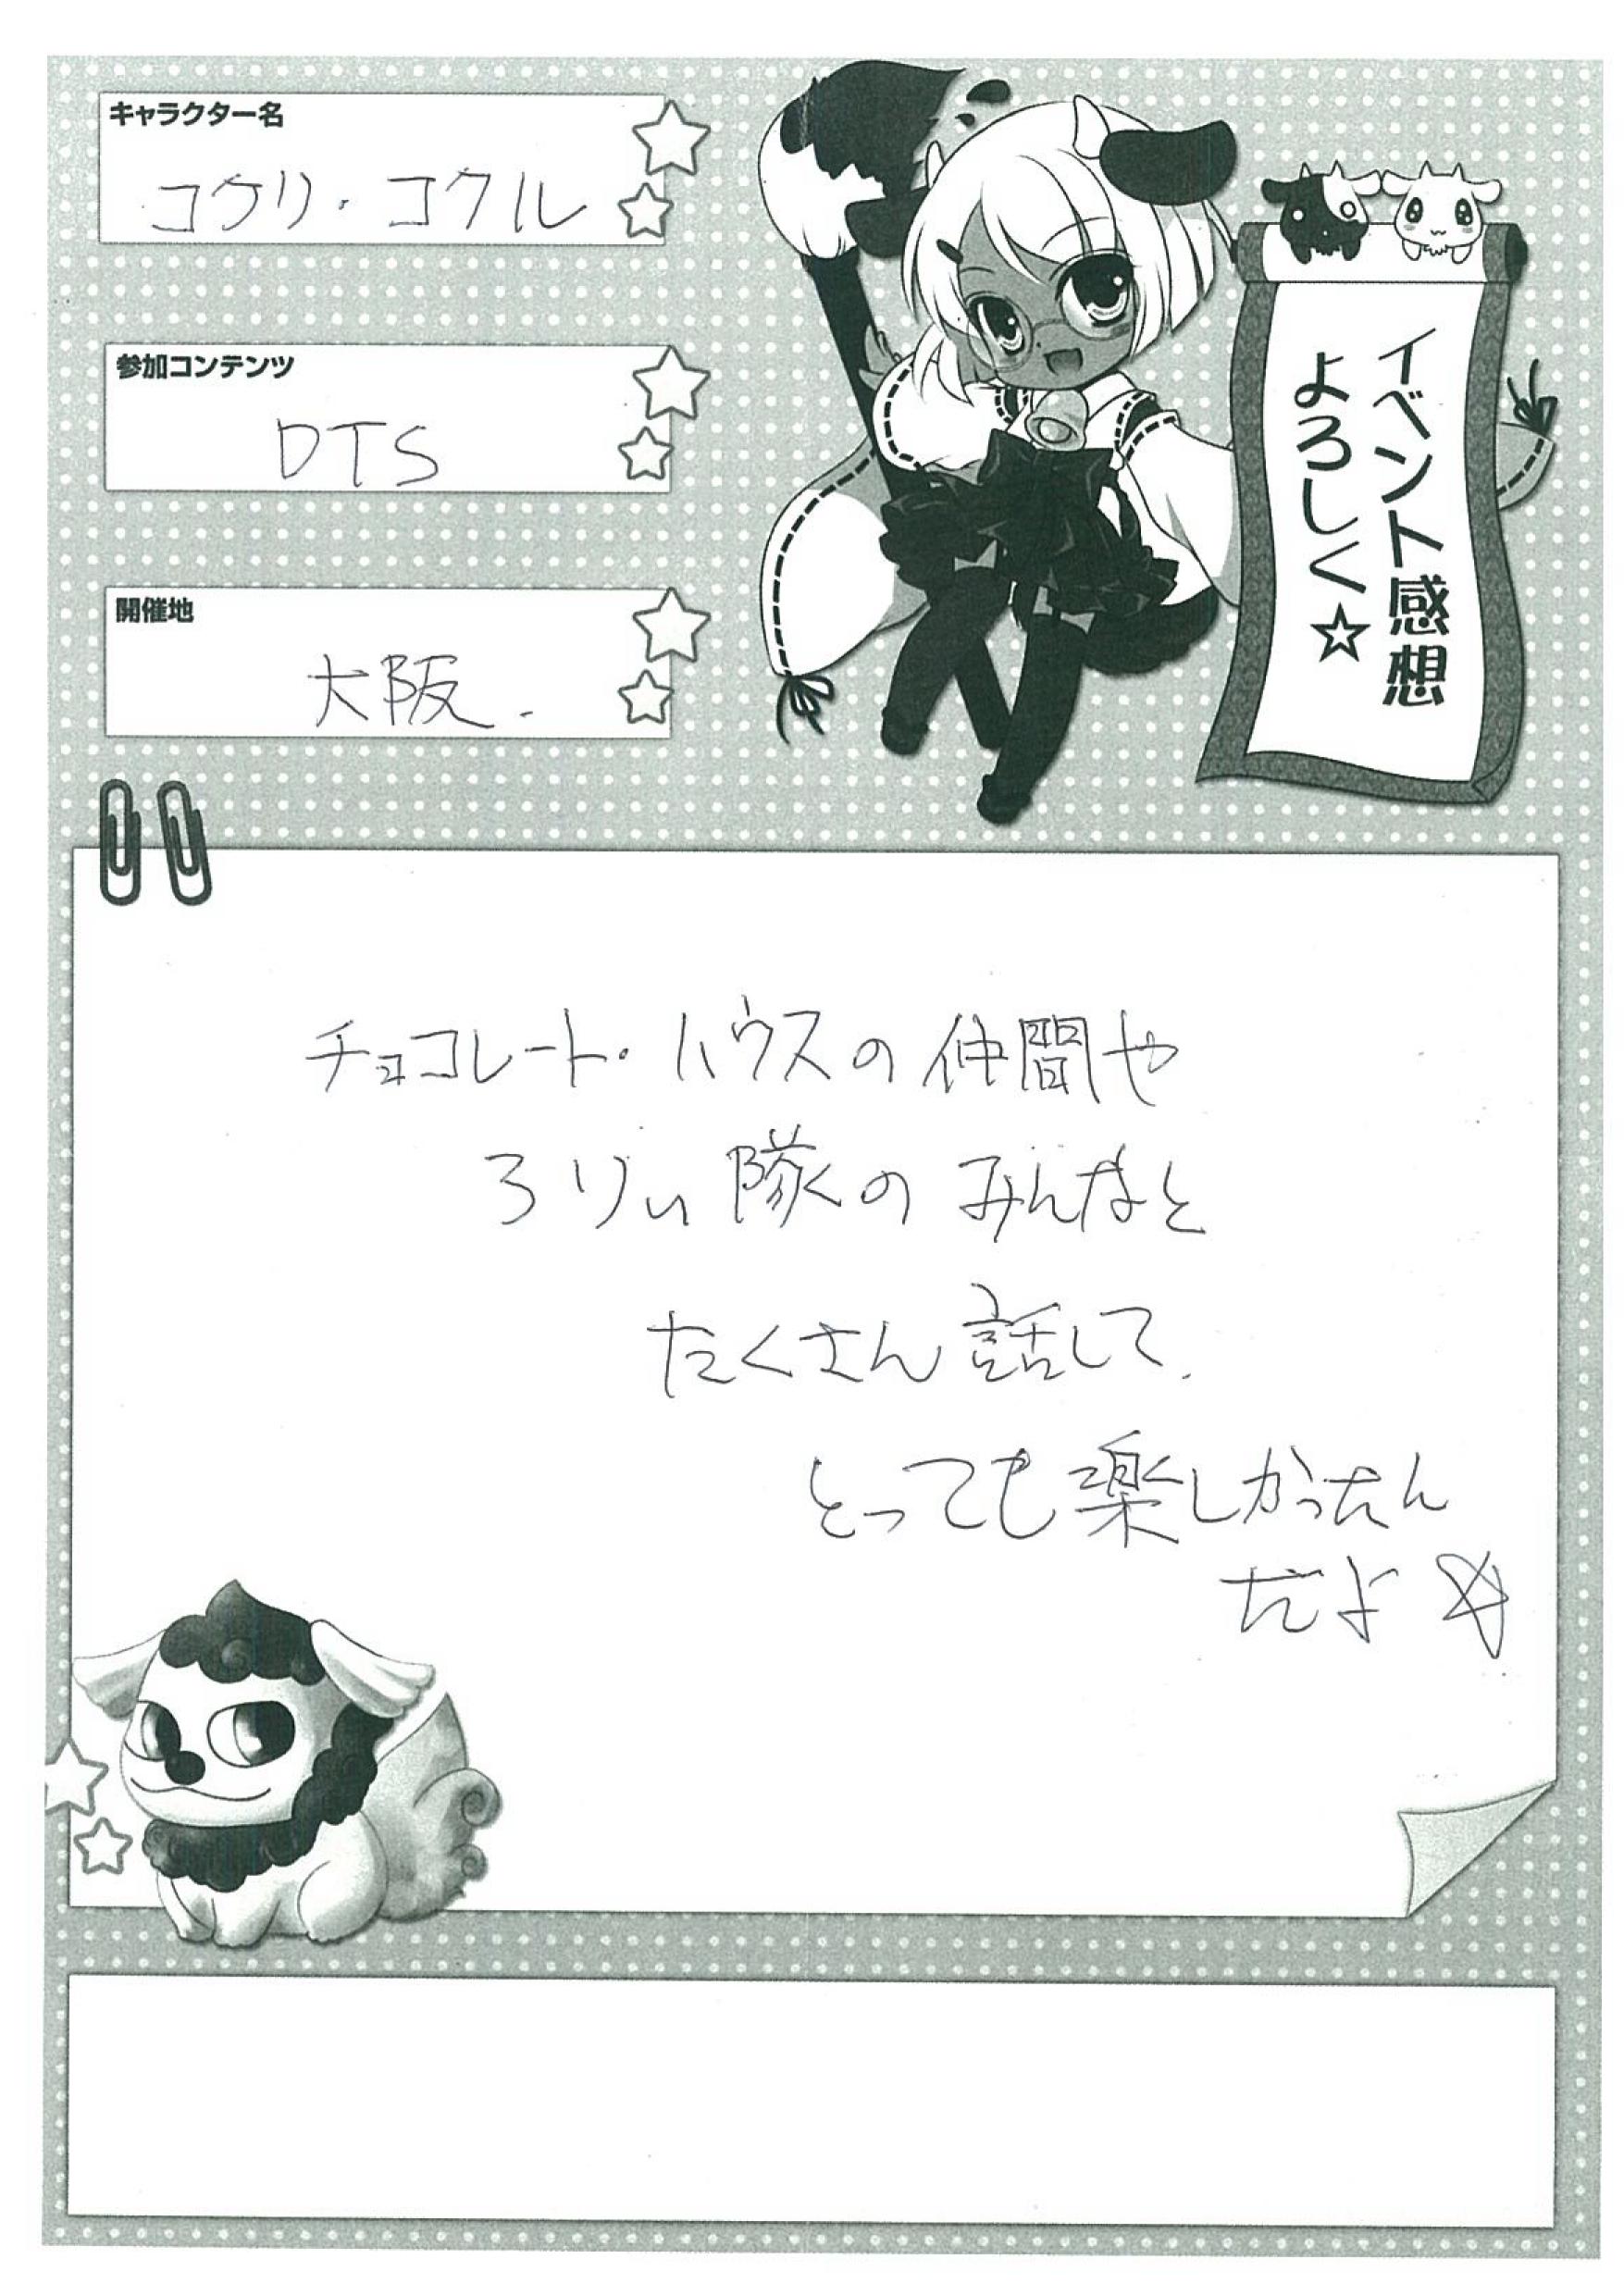 キャラクター名
コクリ・コクル
参加コンテンツ
DTS
開催地
大阪.
イベント感想
よろしく☆
チョコレート・ハウスの仲間や
ろりぃ隊のみんなと
たくさん話して、
とっても楽しかったん
だよ☆